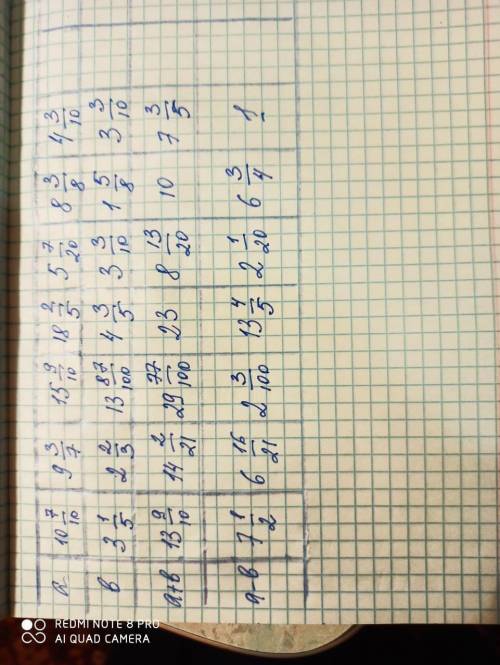 a 10 7/10 9 3/7 15 9/10 18 2/5 5 7/20 8 3/8 4 3/10
в 3 1/5 2 2/3 13 87/100 4 3/5 3 3/10 1 5/8 3 3/10
a+в 13 9/10 14 2/21 29 77/100 23 8 13/20 10 7 3/5
a-в 7 1/2 6 16/21 2 3/100 13 4/5 2 1/20 6 3/4 1
REDMI NOTE 8 PRO
AI QUAD CAMERA